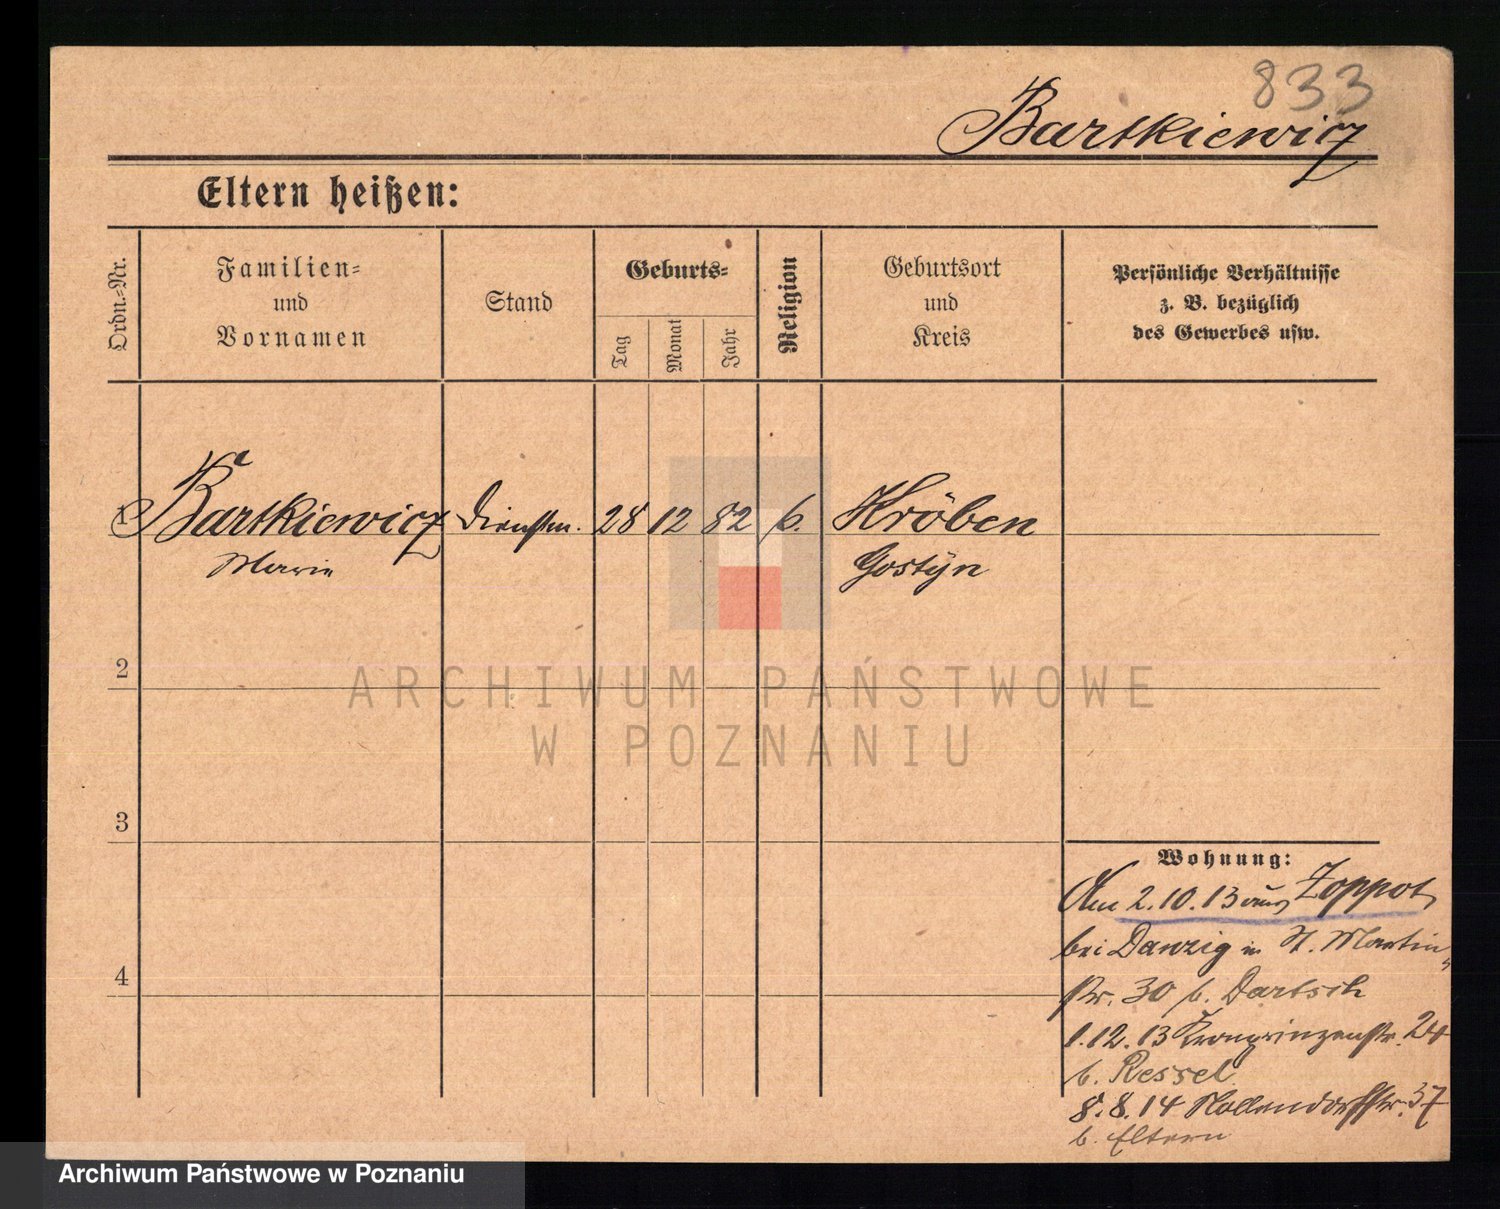 833
Bartkiewicz
Eltern heißen:
Ordn.-Nr.
Familien- und Vornamen
Stand
Geburts-
Tag
Monat
Jahr
Religion
Geburtsort und Kreis
Persönliche Verhältnisse
z. B. bezüglich
des Gewerbes usw.
1 Bartkiewicz Dienstm. 28 12 82 k. Kröben
Marie Gostyn
2
3
4
ARCHIWUM PAŃSTWOWE
W POZNANIU
Wohnung:
Am 2.10.13 aus Zoppot
bei Danzig in St. Martin-
str. 30 b. Dartsch
1.12.13 Kronprinzenstr. 24
b. Ressel
8.8.14 Hollendorffstr. 37
b. Eltern
Archiwum Państwowe w Poznaniu